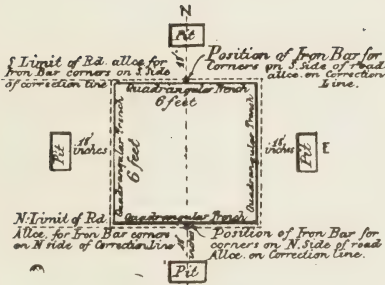 N
Pit
18"
S Limit of Rd. allce for
Iron Bar corners on S. Side
of correction line
Position of Iron Bar for
Corners on S. Side of road
allce. on Correction
Line.
Quadrangular Trench
6 feet
Quadrangular Trench
6 feet
Quadrangular Trench
Pit
18"
inches
18"
inches
Pit
E
N. Limit of Rd
Allce. for Iron Bar corners
on N side of Correction Line
Quadrangular Trench
Position of Iron Bar for
corners on N. Side of road
Allce. on Correction line.
inches
Pit